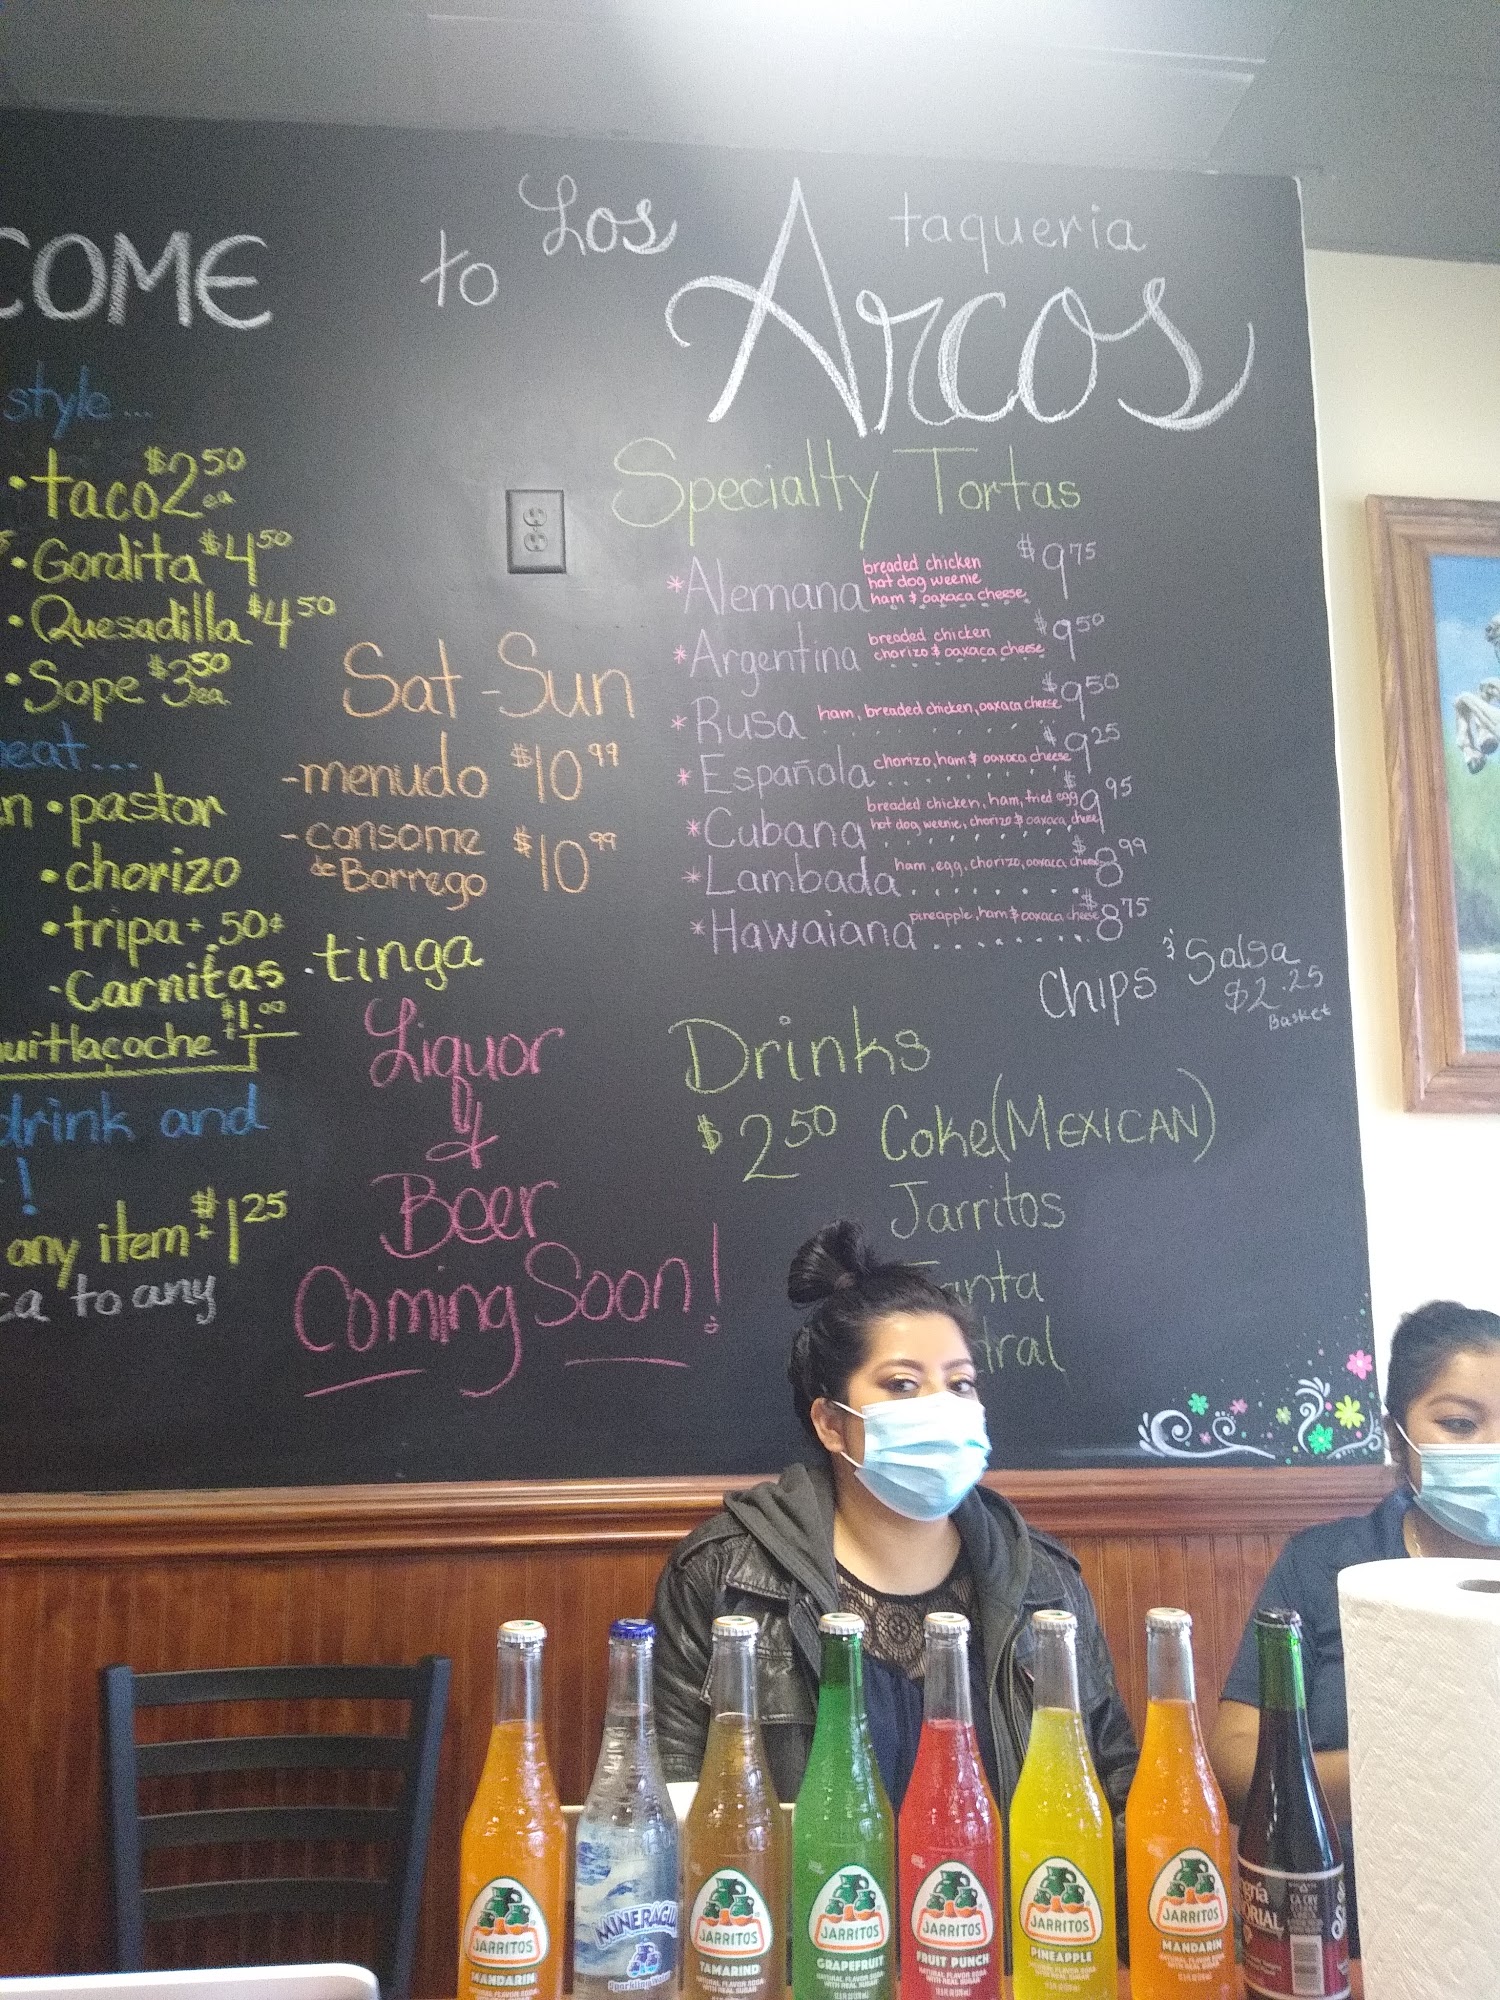 COME to Los Arcos taqueria
style...
• taco $2.50 ea
• Gordita $4.50
• Quesadilla $4.50
• Sope $3.50 ea
eat...
• pastor
• chorizo
• tripa + .50¢
- Carnitas • tinga
uitlacoche + $1.00
drink and
!
any item + $1.25
ca to any
Sat - Sun
- menudo $10.99
- consome
de Borrego $10.99
Liquor
&
Beer
Coming Soon!
Specialty Tortas
* Alemana breaded chicken $9.75
hot dog weenie
ham & oaxaca cheese
* Argentina breaded chicken $9.50
chorizo & oaxaca cheese
* Rusa ham, breaded chicken, oaxaca cheese $9.50
* Española chorizo, ham & oaxaca cheese $9.25
* Cubana breaded chicken, ham, fried egg $9.95
hot dog weenie, chorizo & oaxaca cheese
* Lambada ham, egg, chorizo, oaxaca cheese $8.99
* Hawaiana pineapple, ham & oaxaca cheese $8.75
Chips & Salsa
$2.25
Basket
Drinks
$2.50 Coke (MEXICAN)
Jarritos
anta
dral
JARRITOS
MANDARIN
MINERAGUA
Sparkling Water
JARRITOS
TAMARIND
NATURAL FLAVOR SODA
WITH REAL SUGAR
JARRITOS
GRAPEFRUIT
NATURAL FLAVOR SODA
WITH REAL SUGAR
JARRITOS
FRUIT PUNCH
NATURAL FLAVOR SODA
WITH REAL SUGAR
JARRITOS
PINEAPPLE
NATURAL FLAVOR SODA
WITH REAL SUGAR
JARRITOS
MANDARIN
NATURAL FLAVOR SODA
WITH REAL SUGAR
gría
ORIAL